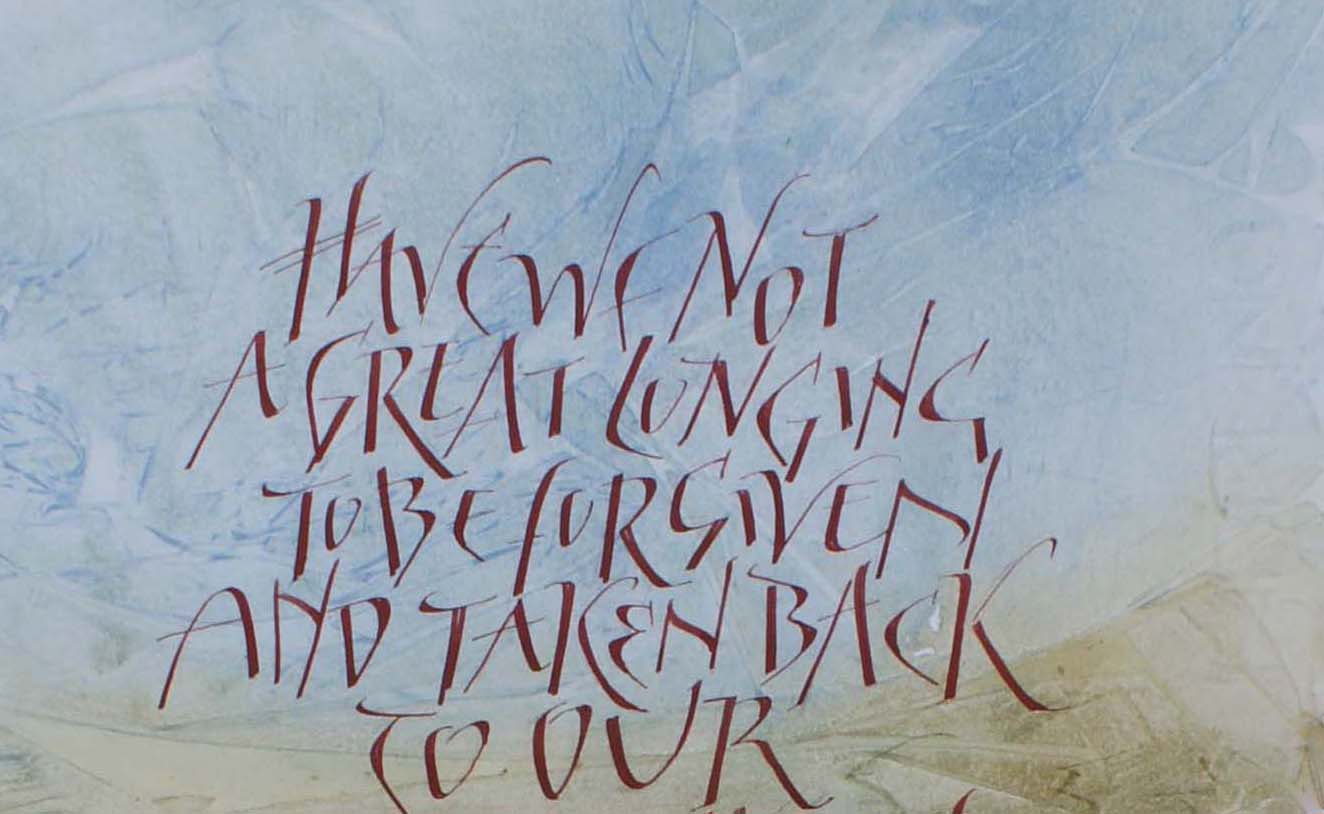 HAVE WE NOT
A GREAT LONGING
TO BE FORGIVEN
AND TAKEN BACK
TO OUR